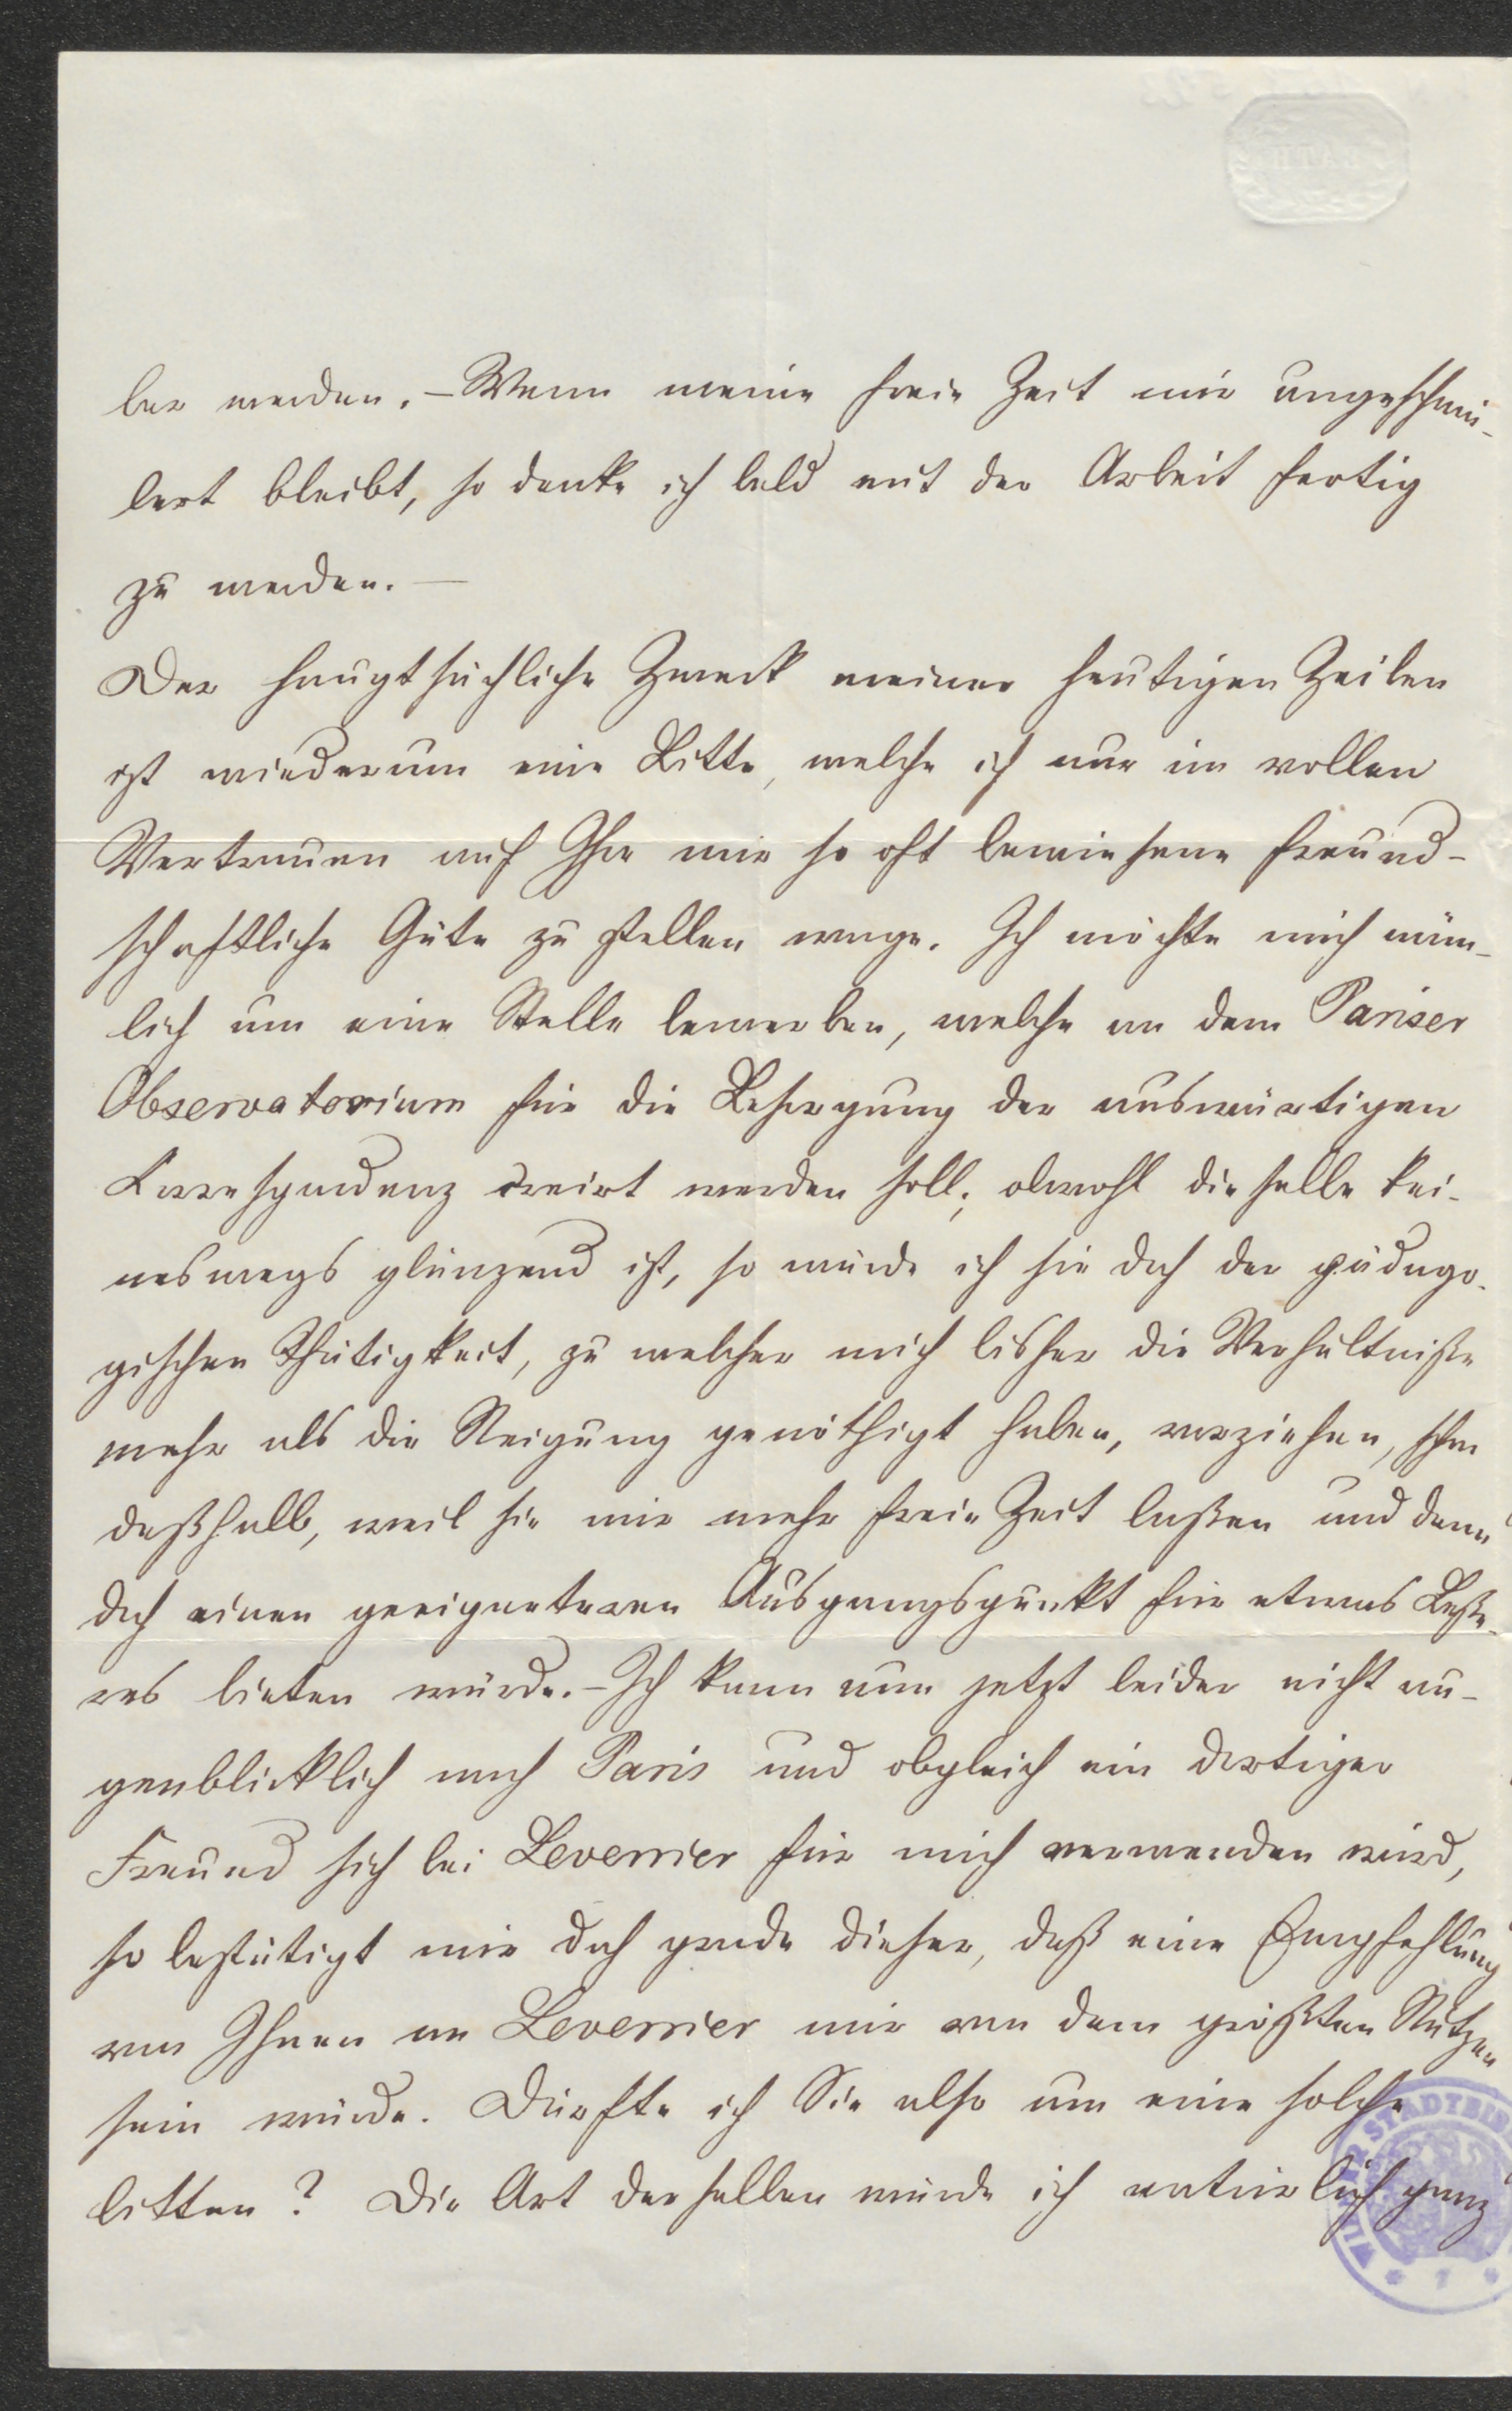 ber werden. – Wenn meine freie Zeit mir ungeschmä-
lert bleibt, so denke ich bald mit der Arbeit fertig
zu werden. –
Der hauptsächliche Zweck meiner heutigen Zeilen
ist wiederum eine Bitte, welche ich nur im vollen
Vertrauen auf Ihre mir so oft bewiesene freund-
schaftliche Güte zu stellen wage. Ich möchte mich näm-
lich um eine Stelle bewerben, welche an dem Pariser
Observatorium für die Besorgung der auswärtigen
Correspondenz creirt werden soll; obwohl dieselbe kei-
neswegs glänzend ist, so würde ich sie doch der pädago-
gischen Thätigkeit, zu welcher mich bisher die Verhältniße
mehr als die Neigung genöthigt haben, vorziehen, schon
deßhalb, weil sie mir mehr freie Zeit laßen und dann
doch einen geeigneteren Ausgangspunkt für etwas Beße-
res bieten würde. – Ich kann nun jetzt leider nicht au-
genblicklich nach Paris und obgleich ein dortiger
Freund sich bei Leverrier für mich verwenden wird,
so bestätigt mir doch grade dieser, daß eine Empfehlung
von Ihnen an Leverrier mir von dem größten Nutzen
sein würde. Dürfte ich Sie also um eine solche
bitten? Die Art derselben würde ich natürlich ganz